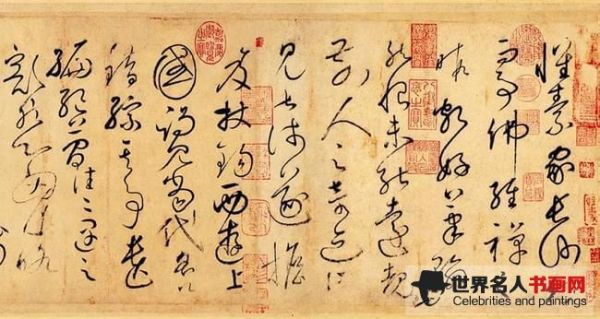 懷素家長沙幼而
事佛經禪之
暇頗好筆翰
然恨未能遠覩
前人之奇迹所
見甚淺遂擔
笈杖錫西遊上
國謁見當代名公
錯綜其事遺
編絕簡往往遇之
豁然心胸略
世界名人书画网
Celebrities and paintings